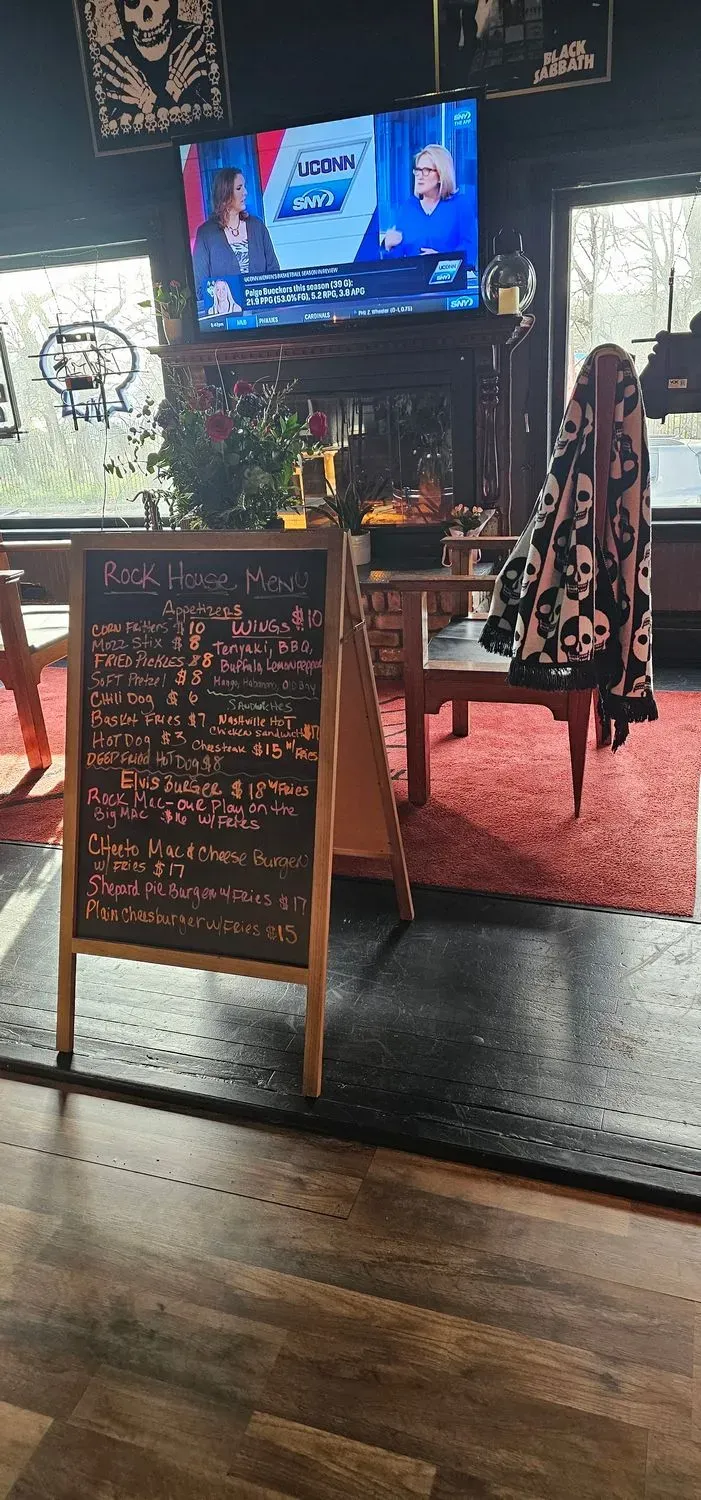 BLACK
SABBATH
SNY
THE APP
UCONN
SNY
UCONN WOMEN'S BASKETBALL SEASON IN REVIEW
Paige Bueckers this season (39 G):
21.9 PPG (53.0% FG), 5.2 RPG, 3.8 APG
UCONN
SNY
MLB PHILLIES CARDINALS PHI: Z. Wheeler (0-1, 0.75)
SNY
Rock House Menu
Appetizers
Corn Fritters $10
Mozz Stix $8
FRIED PICKLES $8
SOFT Pretzel $8
Chili Dog $6
Basket Fries $7
Hot Dog $3
DEEP Fried Hot Dog $8
WINGS $10
Teriyaki, BBQ,
Buffalo, Lemonpepper
Mango, Habanero, Old Bay
Sandwiches
Nashville Hot
Chicken Sandwich $17
Chesteak $15 w/ Fries
Elvis Burger $18 w/ Fries
Rock Mac-our Play on the
Big MAC $16 w/ Fries
CHeeto Mac & Cheese Burger
w/ Fries $17
Shepard pie Burger w/ Fries $17
Plain Cheesburger w/ Fries $15